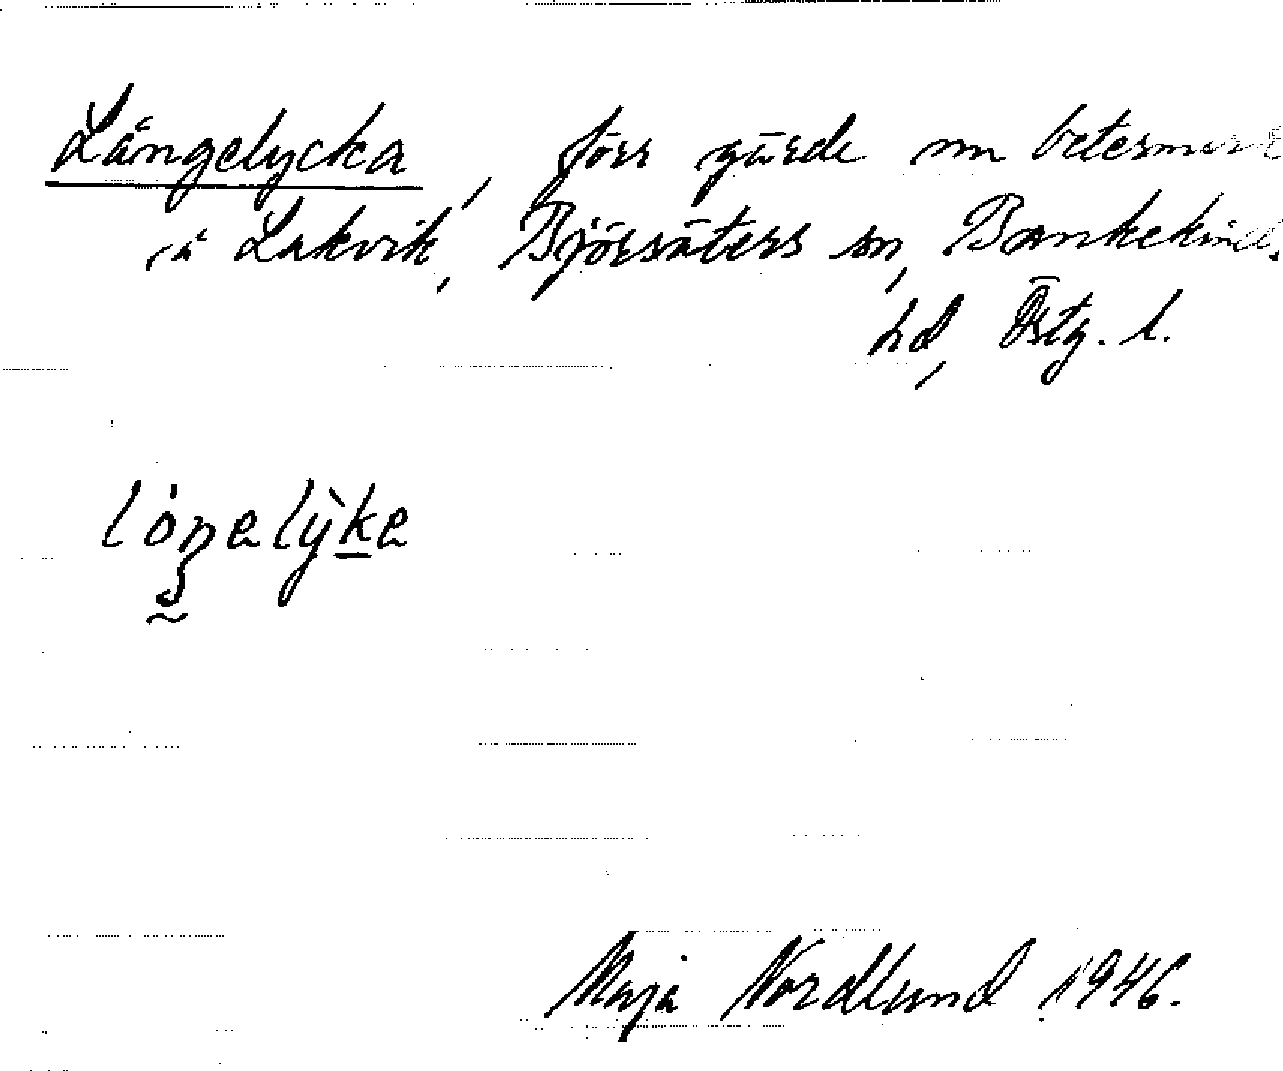 Långelycka, förr gärde nu betesmark
å Lakvik, Björsäters sn, Bankekinds
hd, Östg. l.
Maja Nordlund 1946.